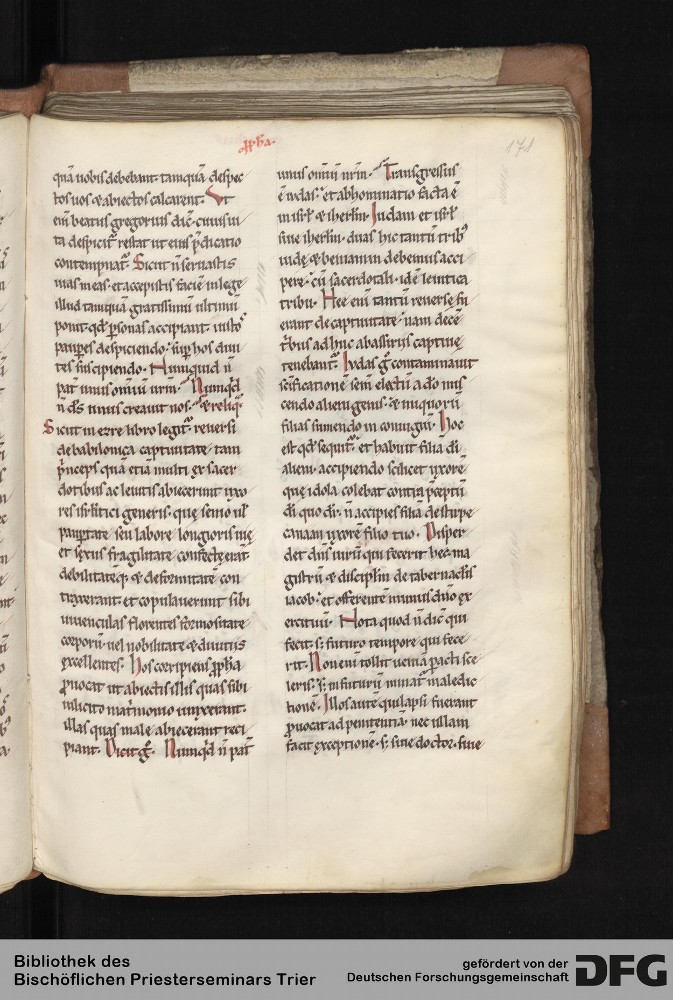 ꝓph̄a.
171
quā uobis debebant. tamquā despec
tos uos & abiectos calcarent. Ut
eni beatus gregorius dic̄. cuius ui
ta despicit᷑ restat ut eius p̄dicatio
contempnat᷑. Sicut n̄ seruastis
uias meas. et accepistis faciē in lege
illud tamquā gratissimū ultimū
ponit. qd̄ ꝑsonas accipiant. iustos
pauꝑes despiciendo. suꝑbos diui
tes suscipiendo. Numquid n̄
pat̄ unus omniū nr̄m. Numqd̄
n̄ ds̄ unus creauit nos. & reliq̄.
Sicut in ezre libro legit᷑. reuersi
de babilonica captiuitate. tam
p̄nceps quā etiā multi ex sacer
dotibus ac leuitis abiecerunt uxo
res isr̄litici generis. que senio ul̄
pauꝑtate seu labore longioris
et sexus fragilitate confecte erant
debilitateq; & deformitatē con
traxerant. et copulauerunt sibi
iuuenculas florentes formositate
corporū. uel nobilitate & diuitiis
excellentes. Hos corripiens ꝓph̄a
ꝓuocat ut abiectis illis quas sibi
illicito mat̄monio iunxerant.
illas quas male abiecerant reci
piant. Dicit g̊. Numqd̄ n̄ pat̄
unus omniū nr̄m. Transgressus
ē iudas. et abhominatio facta ē
in isrl̄ & iherlm̄. Iudam et isrl̄
siue iherlm̄. duas hic tantū tribꝰ
iudę & beniamin debemus acci
pere. cū sacerdotali. id ē leuitica
tribu. Hee eni tantū reuerse fu
erant de captiuitate. nam decē
t̄bus adhuc ab assiriis captiue
tenebant᷑. Iudas g̊ contaminauit
sc̄ificationē semē electū a dō mis
cendo alienigenis. & iniquorū
filias sumendo in coniugiū. Hoc
est qd̄ sequit᷑. et habuit filiā di
alieni. accipiendo scilicet uxorē
que idola colebat contra p̄ceptū
di quo dic̄. n̄ accipies filiā de stirpe
canaan uxorē filio tuo. Disper
det dn̄s uirū qui fecerit hec. ma
gistrū & disciplm̄ de tabernac̄lis
iacob. et offerentē munus dn̄o ex
ercituū. Nota quod n̄ dic̄ qui
fecit. s; futuro tempore qui fece
rit. Non eni tollit uenia ꝑacti sce
leris. s; in futurū minat᷑ maledic
tionē. Illos autē qui lapsi fuerant
ꝓuocat ad penitentiā. nec ullam
facit exceptionē. s; siue doctor. siue
Bibliothek des
Bischöflichen Priesterseminars Trier
gefördert von der
Deutschen Forschungsgemeinschaft
DFG